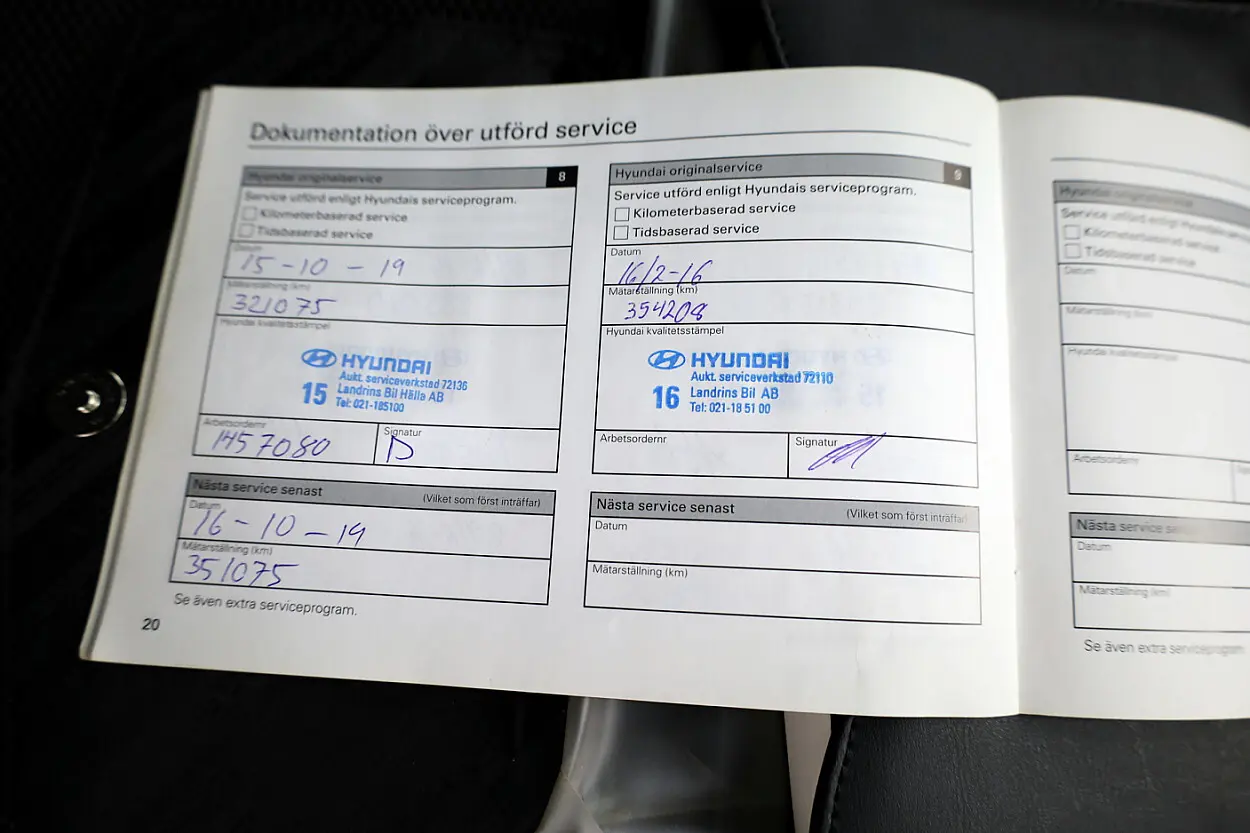 Dokumentation över utförd service
Hyundai originalservice 8
Service utförd enligt Hyundais serviceprogram.
Kilometerbaserad service
Tidsbaserad service
Datum
15-10-19
Mätarställning (km)
321075
Hyundai kvalitetsstämpel
HYUNDAI
Aukt. serviceverkstad 72136
15 Landrins Bil Hälla AB
Tel: 021-185100
Arbetsordernr
1457080
Signatur
Nästa service senast (Vilket som först inträffar)
Datum
16-10-19
Mätarställning (km)
351075
Se även extra serviceprogram.
20
Hyundai originalservice 9
Service utförd enligt Hyundais serviceprogram.
Kilometerbaserad service
Tidsbaserad service
Datum
16/2-16
Mätarställning (km)
354208
Hyundai kvalitetsstämpel
HYUNDAI
Aukt. serviceverkstad 72110
16 Landrins Bil AB
Tel: 021-18 51 00
Arbetsordernr
Signatur
Nästa service senast (Vilket som först inträffar)
Datum
Mätarställning (km)
Hyundai originalservice
Service utförd enligt Hyundais
Kilometerbaserad service
Tidsbaserad service
Datum
Mätarställning (km)
Hyundai kvalitetsstämpel
Arbetsordernr
Nästa service
Datum
Mätarställning (km)
Se även extra serviceprogram.